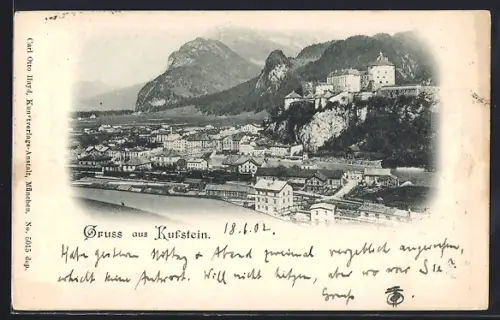 Carl Otto Hayd, Kunstverlags-Anstalt, München. No. 5615 dep.
Gruss aus Kufstein. 18.6.02.
Habe gestern Mittag & Abend zweimal vergeblich angerufen
erhielt keine Antwort. Will nicht hetzen, aber wo war Sie?
Gruß